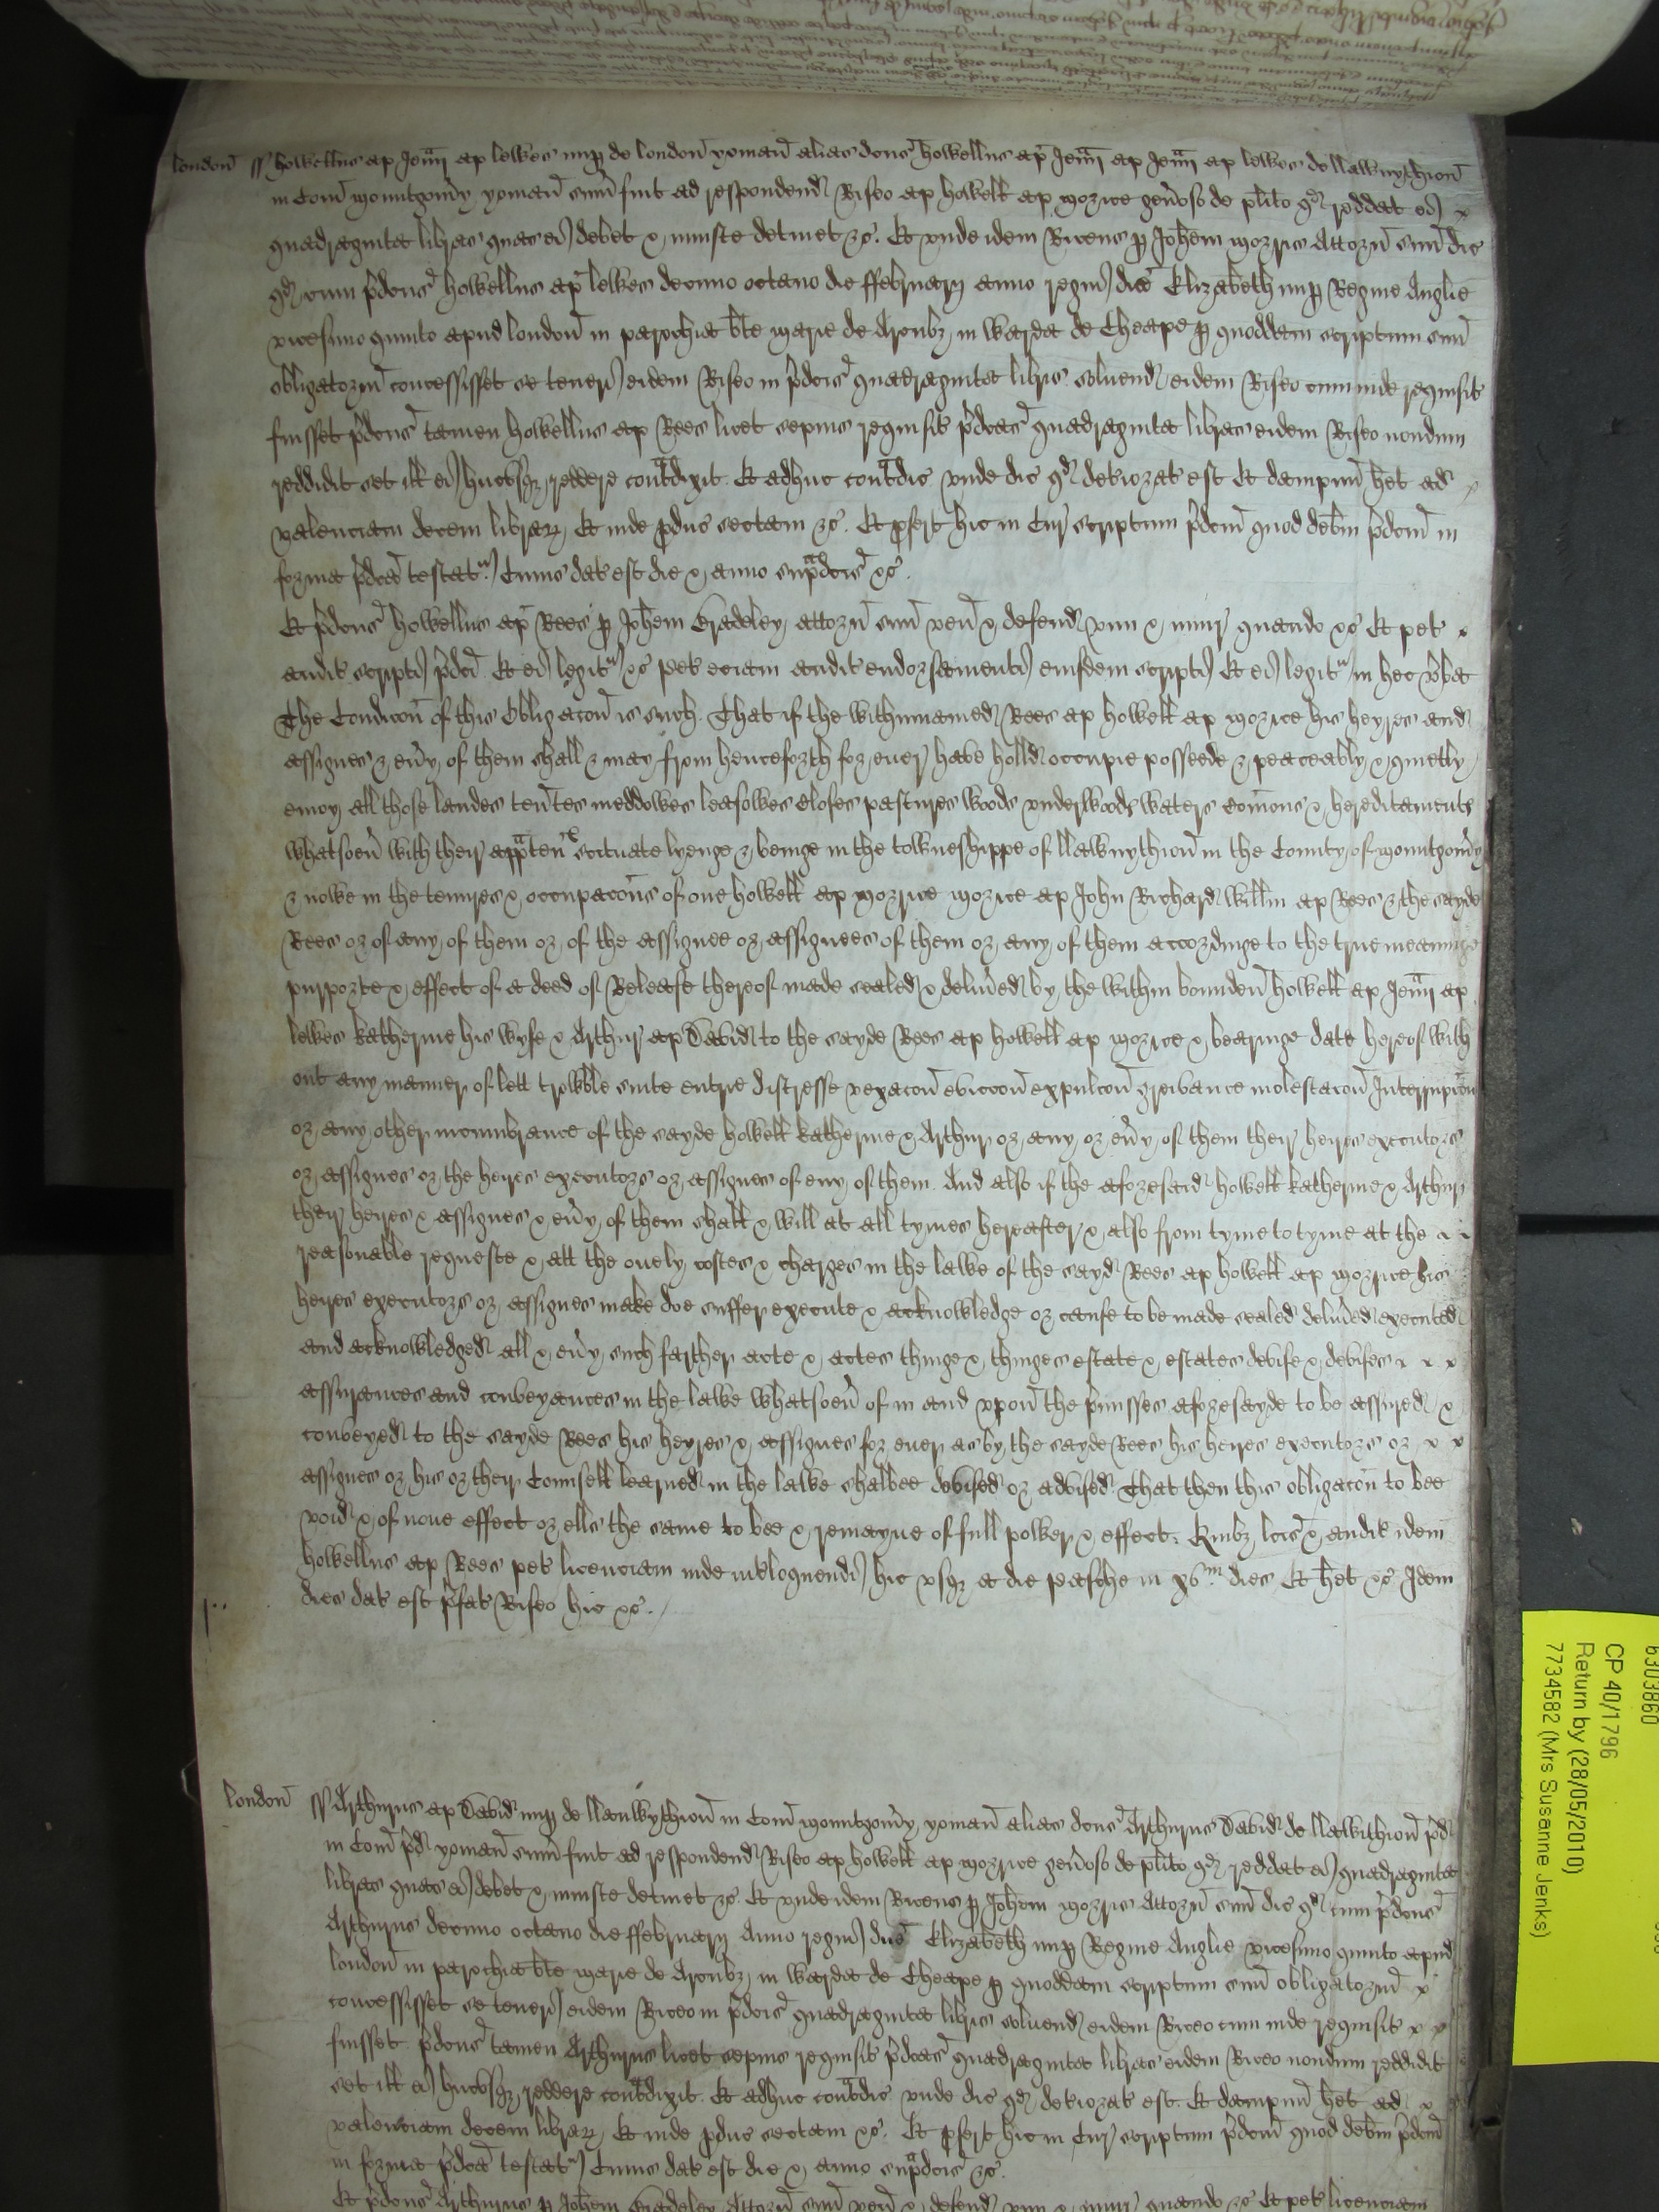 london ss howellus ap Jeun ap lewes nup de london yoman alias dcus howellus ap Jeun ap Jeun ap lewes de llawnythion
in Com mountgomy yoman sum fuit ad respondend Riseo ap howell ap morice genoso de plito qd reddat ei
quadraginta libras quas ei debet & iniuste detinet &c. Et unde idem Riceus p Johem morris Attorn suu dic
qd cum pdcus howellus ap lewes decimo octauo die ffebruarij anno regni dne Elizabeth nup Regine Anglie
vicesimo quinto apud london in parochia bte marie de Arcubz in warda de Cheape p quoddam scriptum suu
obligatoriu concessisset se teneri eidem Riseo in pdcis quadraginta libris soluend eidem Riseo cum inde requisit
fuisset pdcus tamen howellus ap Rees licet sepius requisit pdcas quadraginta libras eidem Riseo nondum
reddidit set ill ei hucusqz reddere contdixit. Et adhuc contdic unde dic qd deteriorat est Et dampnu het ad
valenciam decem librarz Et inde pduc sectam &c. Et pfert hic in Cur scriptum pdcm quod debm pdcm in
forma pdca testat Cuius dat est die & anno supdcis &c.
Et pdcus howellus ap Rees p Johem Bradeley attorn suu ven & defend vim & iniur quando &c Et pet
audit scripti pdci Et ei legit &c pet eciam audit endorsamenti eiusdem scripti Et ei legit in hec vba
The Condicon of this Obligacon is such. That if the withinnamed Rees ap howell ap morice his heyres and
assignes & euy of them shall & may from henceforth for euer have holld occupie possede & peaceably & quietly
enioy all those landes tentes meddowes leasowes closes pastures woods underwoods waters comons & hereditaments
whatsoeu with their apptences scituate lyenge & beinge in the towneshippe of llawnythion in the County of mountgomy
& nowe in the tenures & occupacons of one howell ap morice morice ap John Richard willm ap Rees & the sayde
Rees or of any of them or of the assignee or assignees of them or any of them accordinge to the true meaninge
purporte & effect of a deed of Release thereof made sealed & deliued by the within bounden howell ap Jeun ap
lewes katherine his wyfe & Arthur ap David to the sayde Rees ap howell ap morice & bearinge date hereof with
out any manner of lett trowble suite entrie distresse vexacon eviccon expulcon greivance molestacon Interrupcon
or any other incumbrance of the sayde howell katherine & Arthur or any or euy of them their heires executors
or assignes or the heires executors or assignes of eny of them. And also if the aforesaid howell katherine & Arthur
their heires & assignes & euy of them shall & will at all tymes hereafter & also from tyme to tyme at the
reasonable requeste & att the onely costes & charges in the lawe of the sayd Rees ap howell ap morice his
heires executors or assignes make doe suffer execute & acknowledge or cause to be made sealed deliued executed
and acknowledged all & euy such farther acte & actes thinge & thinges estate & estates devise & devises
assurances and conveyances in the lawe whatsoeu of in and upon the pmisses aforesayde to be assured &
conveyed to the sayde Rees his heyres & assignes for euer as by the sayde Rees his heires executors or
assignes or his or their Counsell learned in the lawe shalbee devised or advised That then this obligacon to bee
void & of none effect or ells the same to bee & remayne of full power & effect. Quibz lcis & audit idem
howellus ap Rees pet licenciam inde intloquendi hic usqz a die pasche in xv dies Et het &c Idem
dies dat est pfat Riseo hic &c.
london ss Arthurus ap David nup de llanwythion in Com mountgomy yoman alias dcus Arthurus David de llawithion pd
in Com pd yoman sum fuit ad respondend Riseo ap howell ap morice genoso de plito qd reddat ei quadraginta
libras quas ei debet & iniuste detinet &c. Et unde idem Riceus p Johem morris Attorn suu dic qd cum pdcus
Arthurus decimo octauo die ffebruarij Anno regni dne Elizabeth nup Regine Anglie vicesimo quinto apud
london in parochia bte marie de Arcubz in warda de Cheape p quoddam scriptum suu obligatoriu
concessisset se teneri eidem Riceo in pdcis quadraginta libris soluend eidem Riceo cum inde requisit
fuisset pdcus tamen Arthurus licet sepius requisit pdcas quadraginta libras eidem Riceo nondum reddidit
set ill ei hucusqz reddere contdixit. Et adhuc contdic unde dic qd deteriorat est. Et dampnu het ad
valenciam decem librarz Et inde pduc sectam &c. Et pfert hic in Cur scriptum pdcm quod debm pdcm
in forma pdca testat Cuius dat est die & anno supdcis &c.
Et pdcus Arthurus p Johem Bradeley Attorn suu ven & defend vim & iniur quando &c Et pet licenciam
6303860
CP 40/1796
Return by (28/05/2010)
7734582 (Mrs Susanne Jenks)